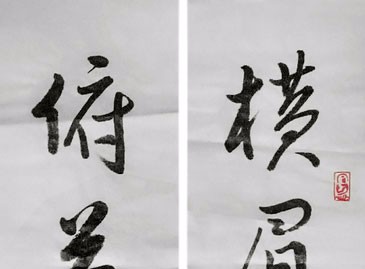 横眉
俯首